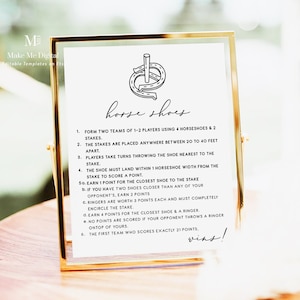 M
Make Me Digital
Editable Templates on Etsy
horse shoes
1. FORM TWO TEAMS OF 1-2 PLAYERS USING 4 HORSESHOES & 2
STAKES.
2. THE STAKES ARE PLACED ANYWHERE BETWEEN 20 TO 40 FEET
APART.
3. PLAYERS TAKE TURNS THROWING THE SHOE NEAREST TO THE
STAKE.
4. THE SHOE MUST LAND WITHIN 1 HORSESHOE WIDTH FROM THE
STAKE TO SCORE A POINT.
5. EARN 1 POINT FOR THE CLOSEST SHOE TO THE STAKE
IF YOU HAVE TWO SHOES CLOSER THAN ANY OF YOUR
OPPONENT'S, EARN 2 POINTS
RINGERS ARE WORTH 3 POINTS EACH AND MUST COMPLETELY
ENCIRCLE THE STAKE.
EARN 4 POINTS FOR THE CLOSEST SHOE & A RINGER.
NO POINTS ARE SCORED IF YOUR OPPONENT THROWS A RINGER
ONTOP OF YOURS.
THE FIRST TEAM WHO SCORES EXACTLY 21 POINTS,
wins!